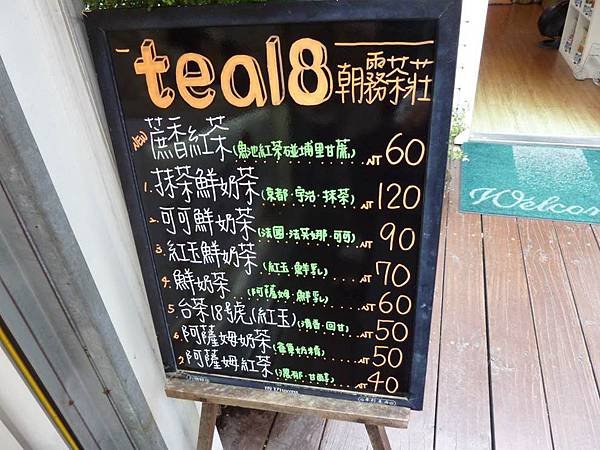 tea18 朝霧茶莊
NEW 蔗香紅茶(魚池紅茶碰埔里甘蔗) NT 60
1. 抹茶鮮奶茶(京都·宇治·抹茶) NT 120
2. 可可鮮奶茶(法國·法芙娜·可可) NT 90
3. 紅玉鮮奶茶(紅玉·鮮乳) NT 70
4. 鮮奶茶(阿薩姆·鮮乳) NT 60
5. 台茶18號(紅玉)(清香·回甘) NT 50
6. 阿薩姆奶茶 NT 50
7. 阿薩姆紅茶(濃郁·甘醇) NT 40
Welcom